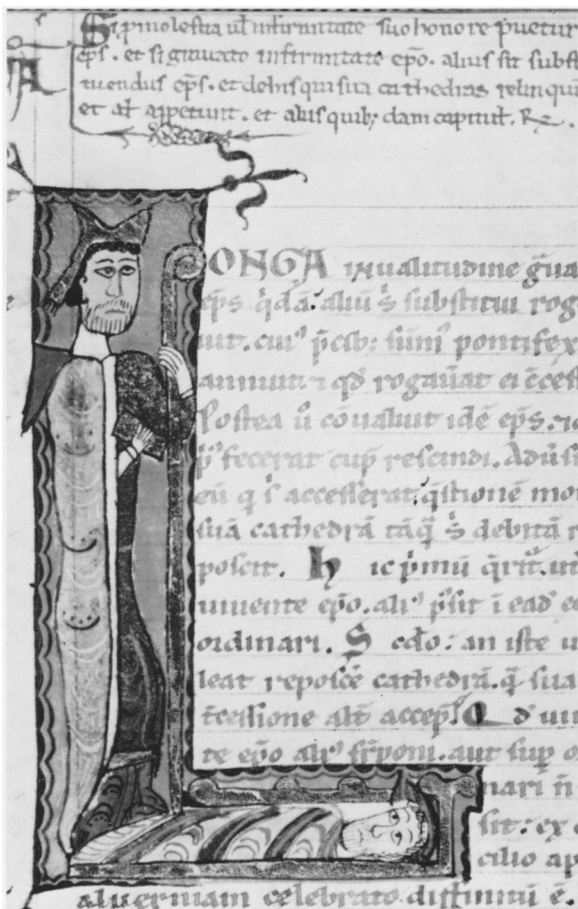 Si p molestia ul infirmitate suo honore priuetur
eps. et si grauato infirmitate epo. alius sit subst
tuendus eps. et de his qui sua cathedras relinqu
et al appetunt. et aliis quib; dam capitul. R.
LONGA inualitudine gua
eps qda aliu s substitui rog
uit. cui' pcib; sum' pontifex
annuit. ⁊ qd rogauat ei ccess
Postea u conualuit ide eps. ⁊
p' fecerat cup rescindi. Adus
eu q s accesserat. qstione mo
sua cathedra taq s debita r
poscit. Hic pmu qrit. ut
uiuente epo. ali' psit i ead ec
ordinari. Scdo: an iste u
leat reposce cathedra. q sua
tcessione alt accep. Qd uiu
te epo ali' sponi. aut sup o
nari n
sit: ex c
cilio ap
alugerniam celebrato. diffinitu e.